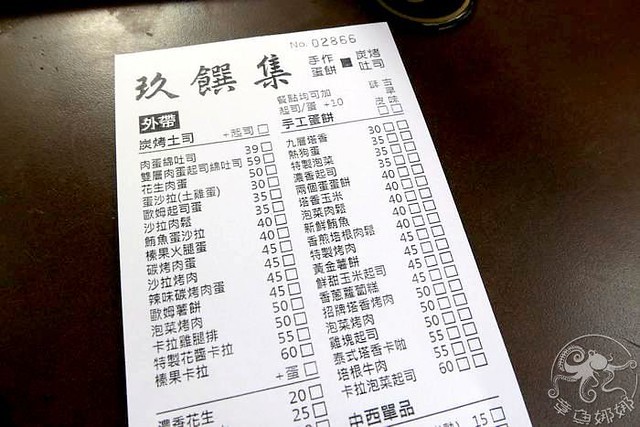 No. 02866
玖饌集
手作蛋餅 炭烤吐司
餐點均可加
起司/蛋 +10
外帶
炭烤土司 +起司
肉蛋綿吐司 39
雙層肉蛋起司綿吐司 59
花生肉蛋 50
蛋沙拉(土雞蛋) 30
歐姆起司蛋 35
沙拉肉鬆 35
鮪魚蛋沙拉 40
榛果火腿蛋 40
碳烤肉蛋 45
沙拉烤肉 45
辣味碳烤肉蛋 45
歐姆薯餅 45
泡菜烤肉 50
卡拉雞腿排 50
特製花醬卡拉 55
榛果卡拉 60
+蛋
濃香花生 20
25
手工蛋餅 酥皮 古早味
九層塔香 30
熱狗蛋 35
特製泡菜 35
濃香起司 35
兩個蛋蛋餅 40
塔香玉米 40
泡菜肉鬆 40
新鮮鮪魚 40
香煎培根肉鬆 45
特製烤肉 45
黃金薯餅 45
鮮甜玉米起司 45
香蔥蘿蔔糕 45
招牌塔香烤肉 50
泡菜烤肉 50
雞塊起司 50
泰式塔香卡啦 55
培根牛肉 55
卡拉泡菜起司 60
中西單品
15
章魚娜娜